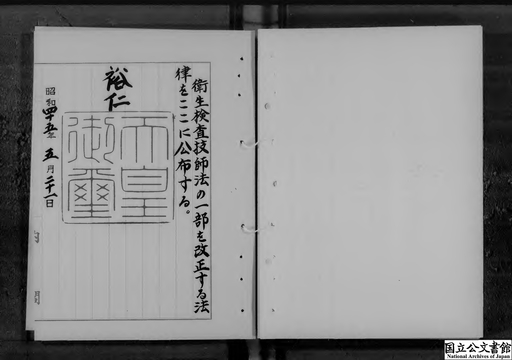 衛生検査技師法の一部を改正する法
律をここに公布する。
裕仁
天皇
御璽
昭和四十五年五月二十一日
国立公文書館
National Archives of Japan